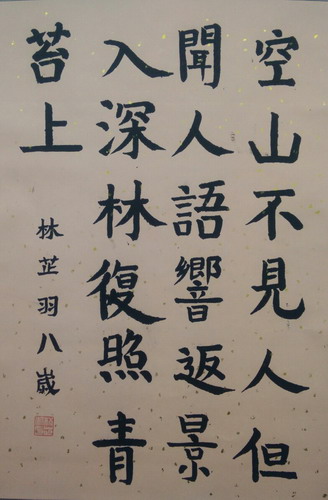 空山不見人但
聞人語響返景
入深林復照青
苔上
林芷羽八歲